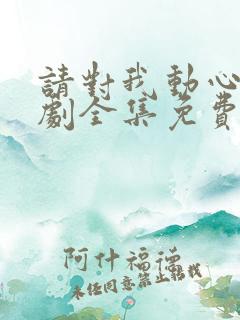 請對我動心
劇全集免費
阿什福德
未經同意禁止搭戟